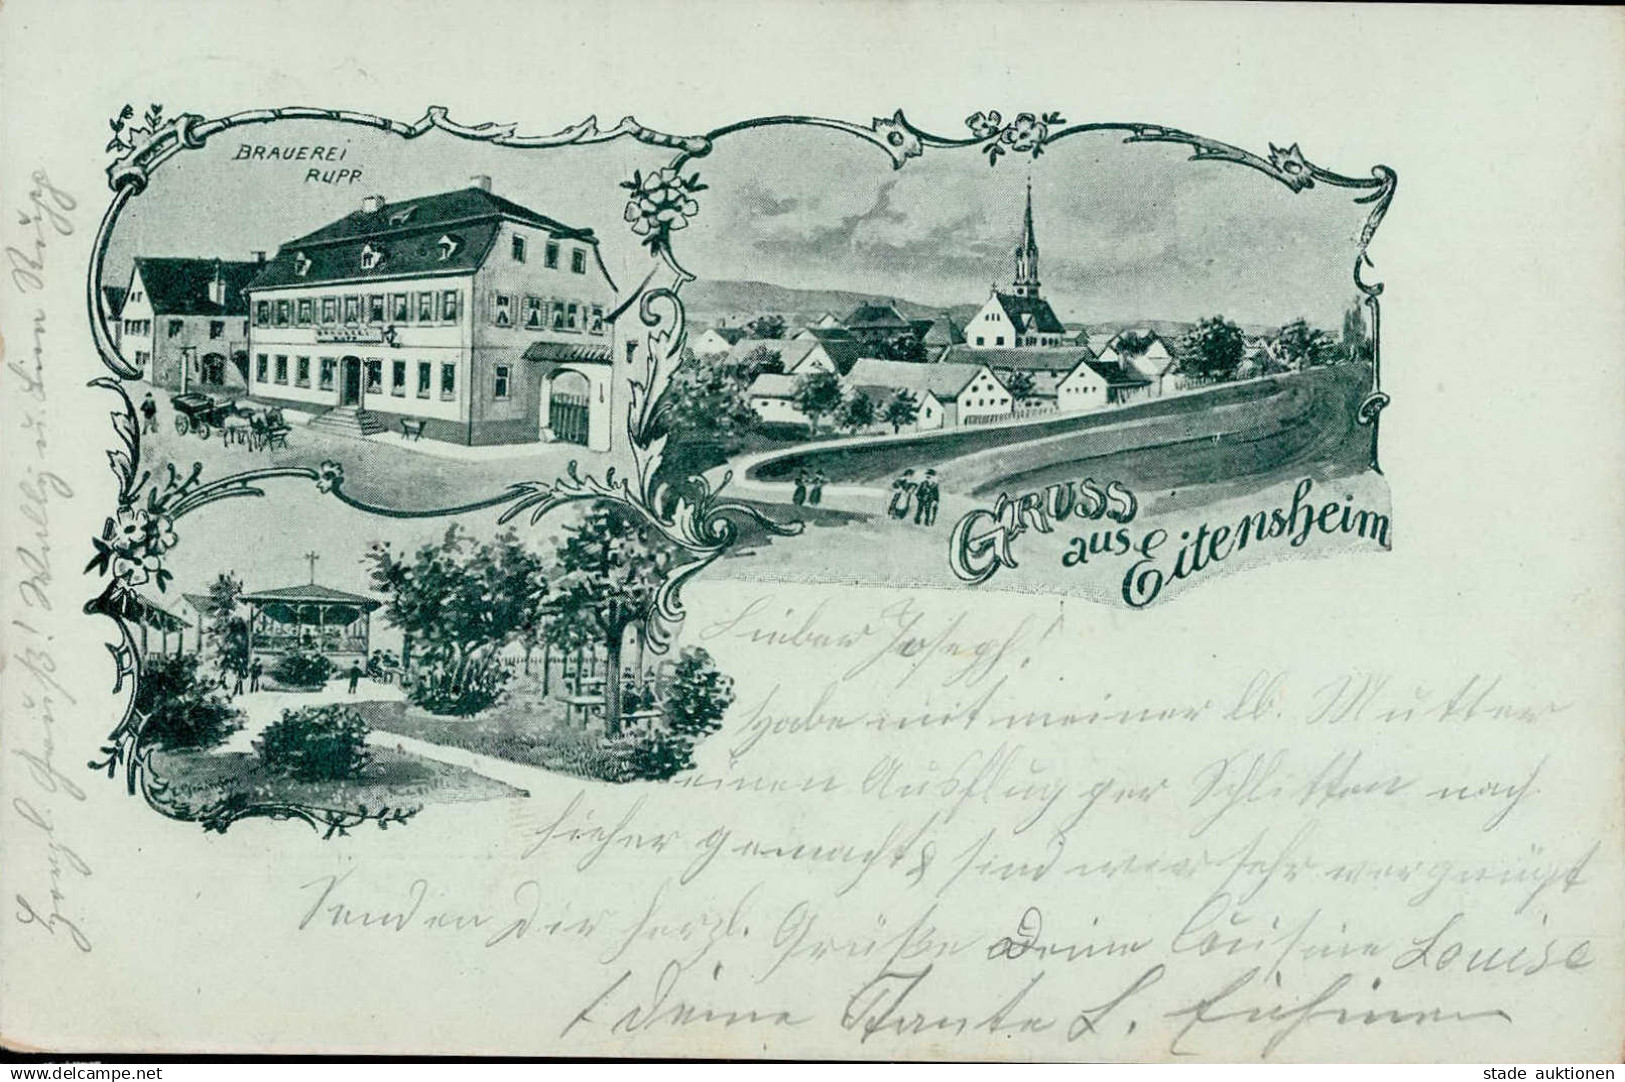 BRAUEREI
RUPP
BRAUEREI
GRUSS
aus Eitensheim
Lieber Joseph!
Habe mit meiner lb. Mutter
einen Ausflug per Schlitten nach
hieher gemacht & sind wir sehr vergnügt
Senden Dir herzl. Grüße Deine Cousine Louise
Deine Tante L.
Herzl. Gruß! Rupp
www.delcampe.net
stade auktionen